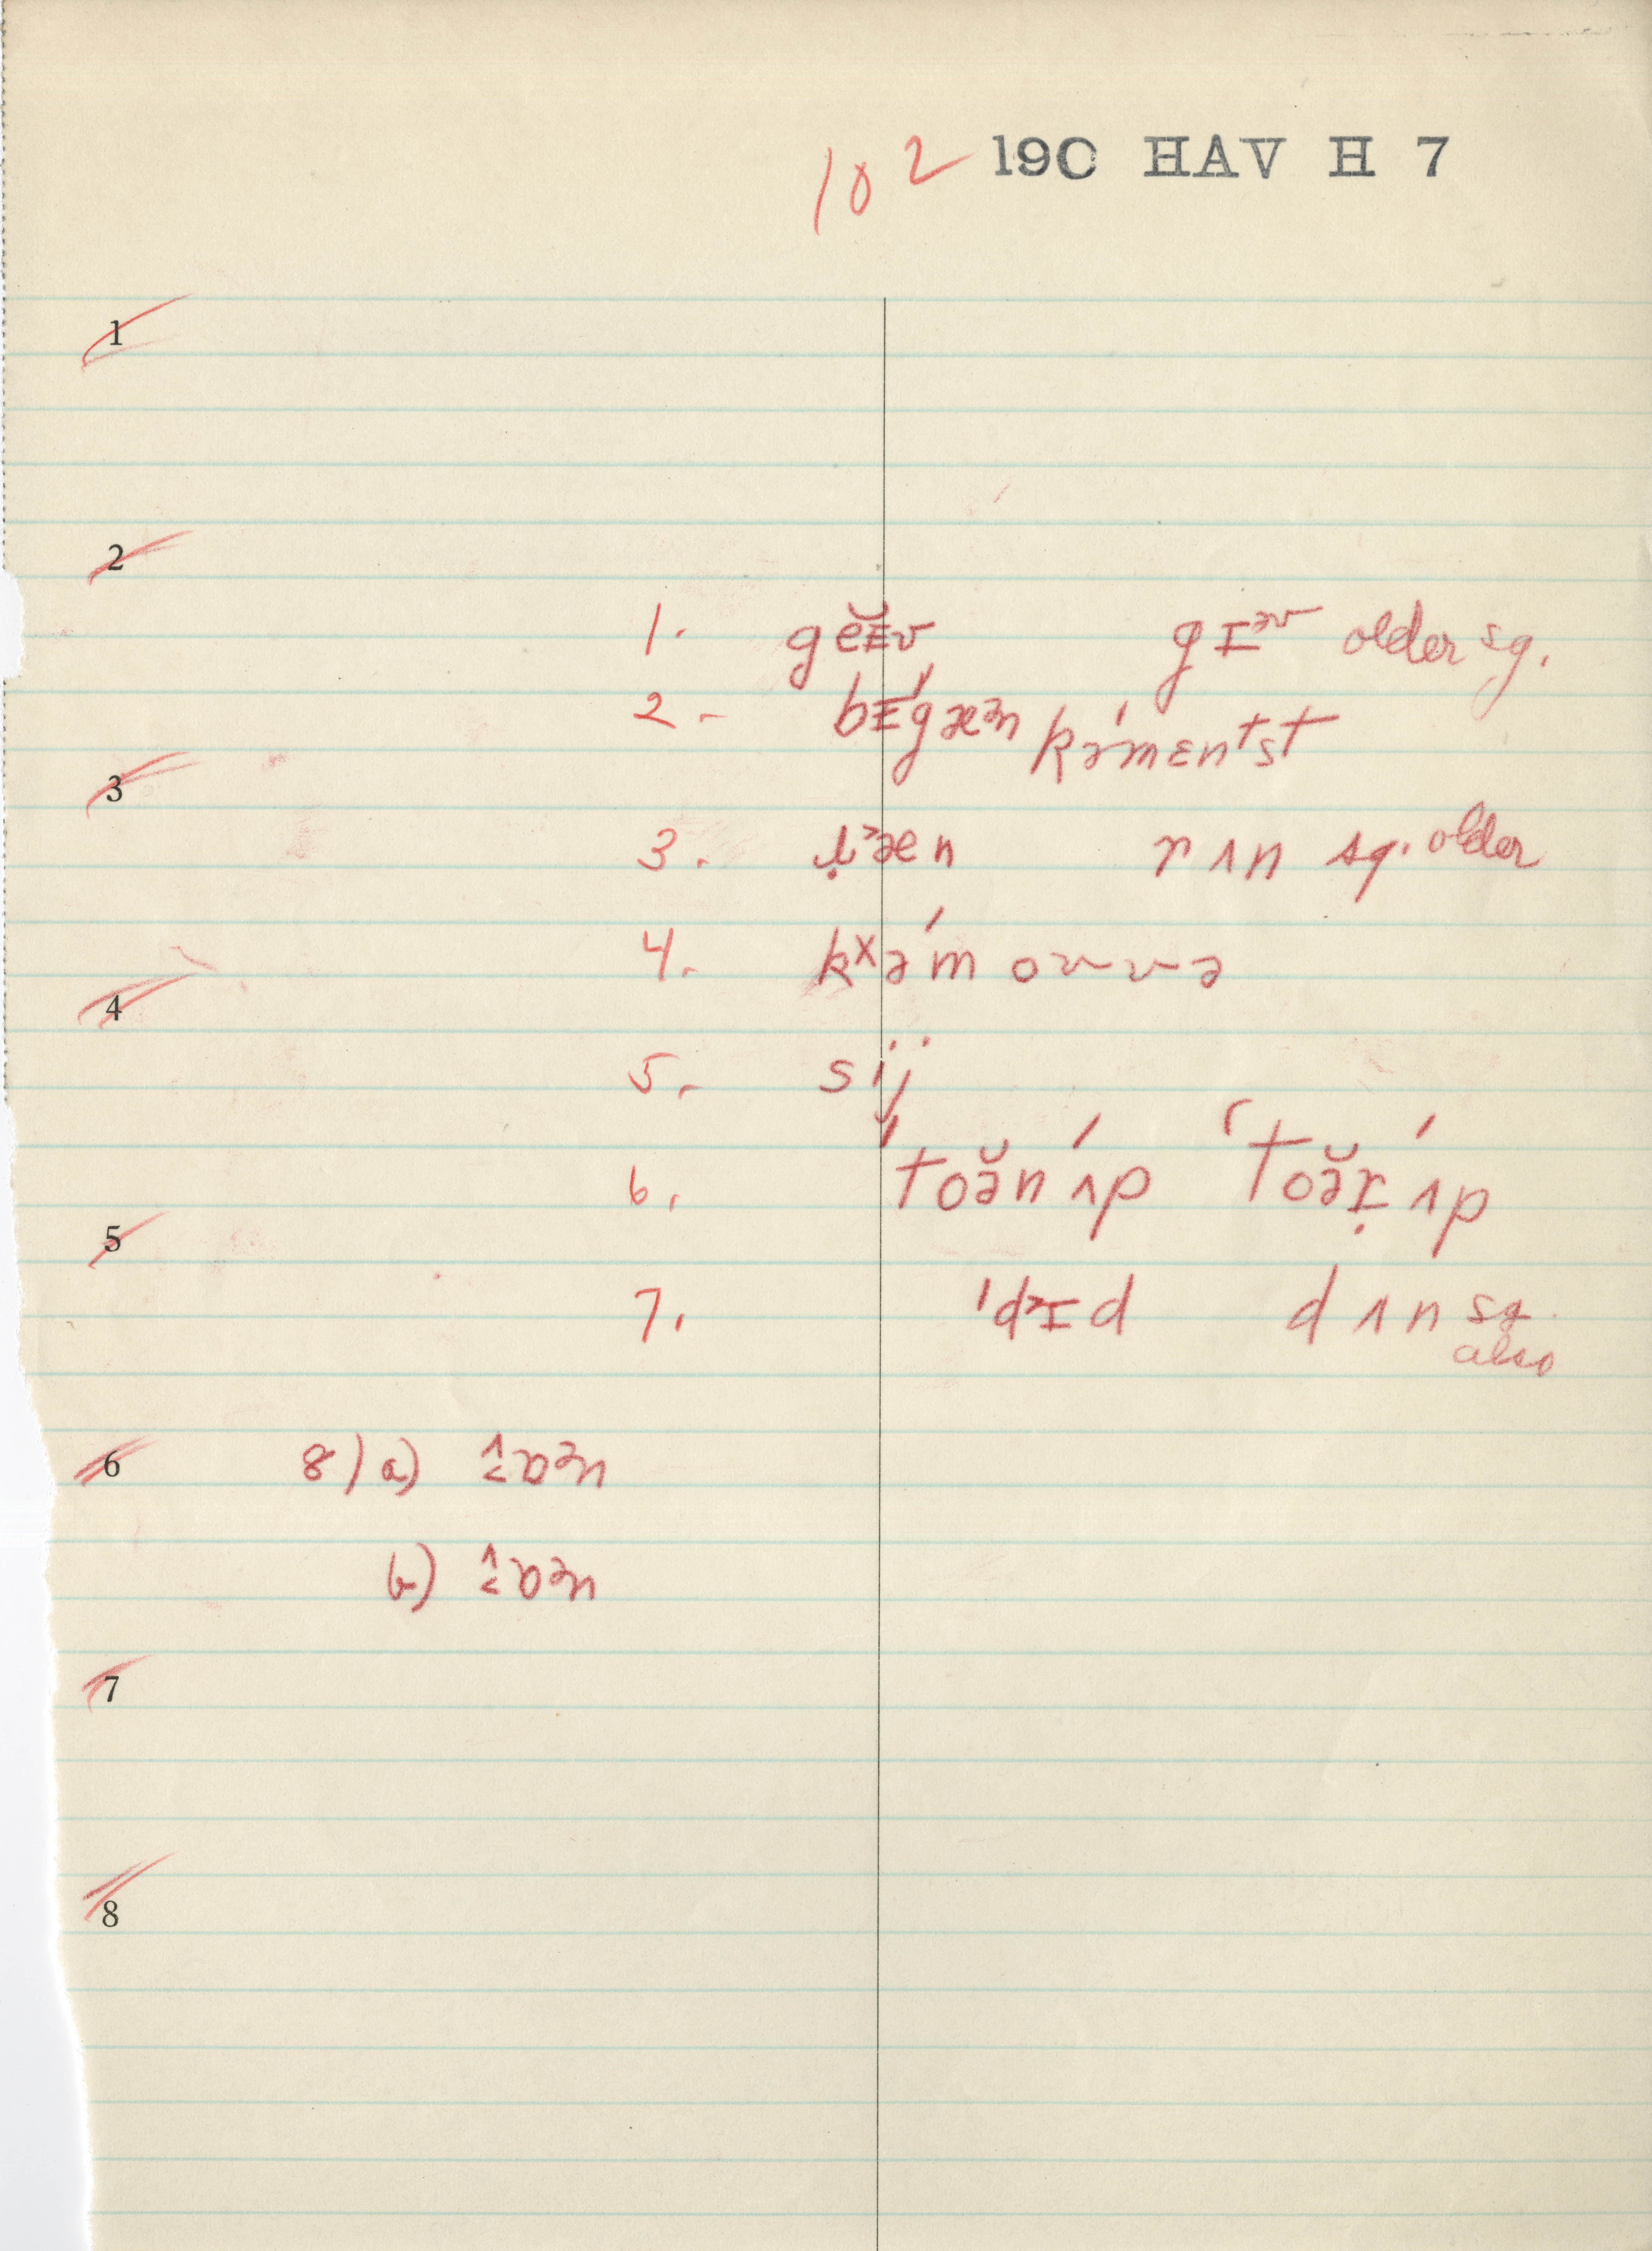 102 190 HAV H 7
1
2
1. gĕɪv gɪᵊᵛ older sg.
2. bɪ́gæᵊn kə́mɛnᵗst
3
3. ræn rʌn sg. older
4. kˣə́m ovvə
4
5. sij
6. ˈtoə̆nʌ́p ˈtoə̆ɪ̣ʌ́p
5
7. ˈdɪd dʌn sg. also
6 8) a)
b)
7
8